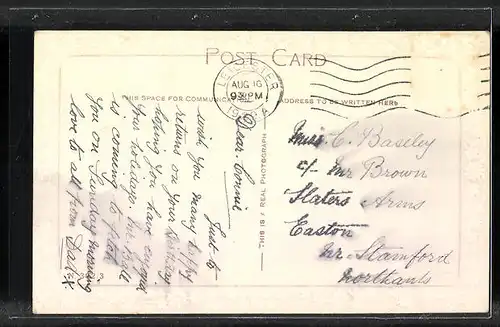 POST CARD
LEICESTER
AUG 16
930PM
19
THIS SPACE FOR COMMUNICATION
ADDRESS TO BE WRITTEN HERE
THIS IS A REAL PHOTOGRAPH
Dear Connie
Just to
wish you many happy
returns on your Birthday
hoping you have enjoyed
your holidays. Mr.
is coming to fetch
you on Sunday morning
love to all from Dad X
Miss C. Baseley
c/- Mr Brown
Slaters Arms
Easton
Nr. Stamford
Northants